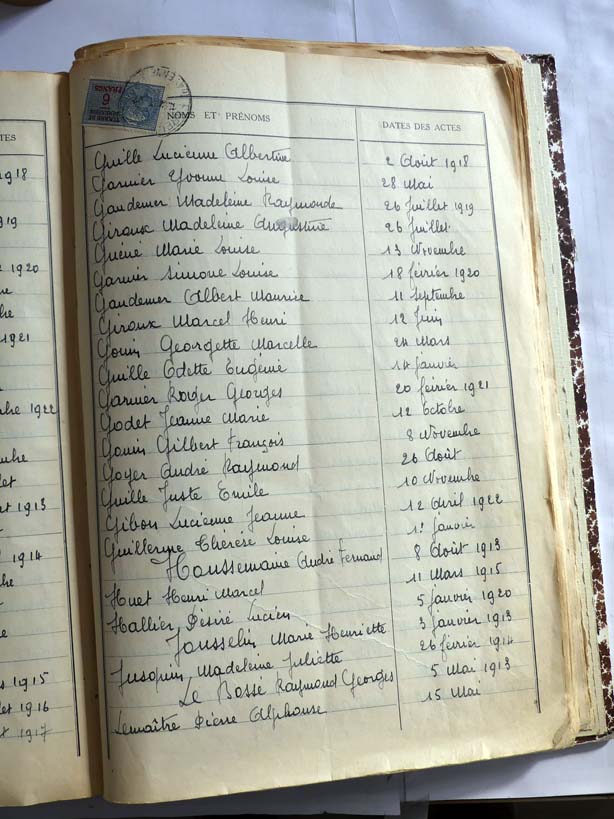 NOMS ET PRÉNOMS DATES DES ACTES
6 FRANCS
Guille Lucienne Albertine 2 Août 1918
Garnier Yvonne Louise 28 Mai
Gaudemer Madeleine Raymonde 26 Juillet 1919
Giroux Madeleine Augustine 26 Juillet
Guéné Marie Louise 13 Novembre
Garnier Simone Louise 18 février 1920
Gaudemer Albert Maurice 11 Septembre
Giroux Marcel Henri 12 Juin
Gouin Georgette Marcelle 24 Mars
Guille Odette Eugénie 14 janvier
Garnier Roger Georges 20 février 1921
Godet Jeanne Marie 12 Octobre
Gouin Gilbert François 8 Novembre
Goyer André Raymond 26 Août
Guille Juste Emile 10 Novembre
Gibon Lucienne Jeanne 12 Avril 1922
Guillerme Thérèse Louise 1er janvier
Houssemaine André Fernand 8 Août 1913
Huet Henri Marcel 11 Mars 1915
Hallier Désiré Lucien 5 janvier 1920
Jousselin Marie Henriette 3 janvier 1913
Jusquin Madeleine Juliette 26 février 1914
Le Bossé Raymond Georges 5 Mai 1913
Lemaître Pierre Alphonse 15 Mai